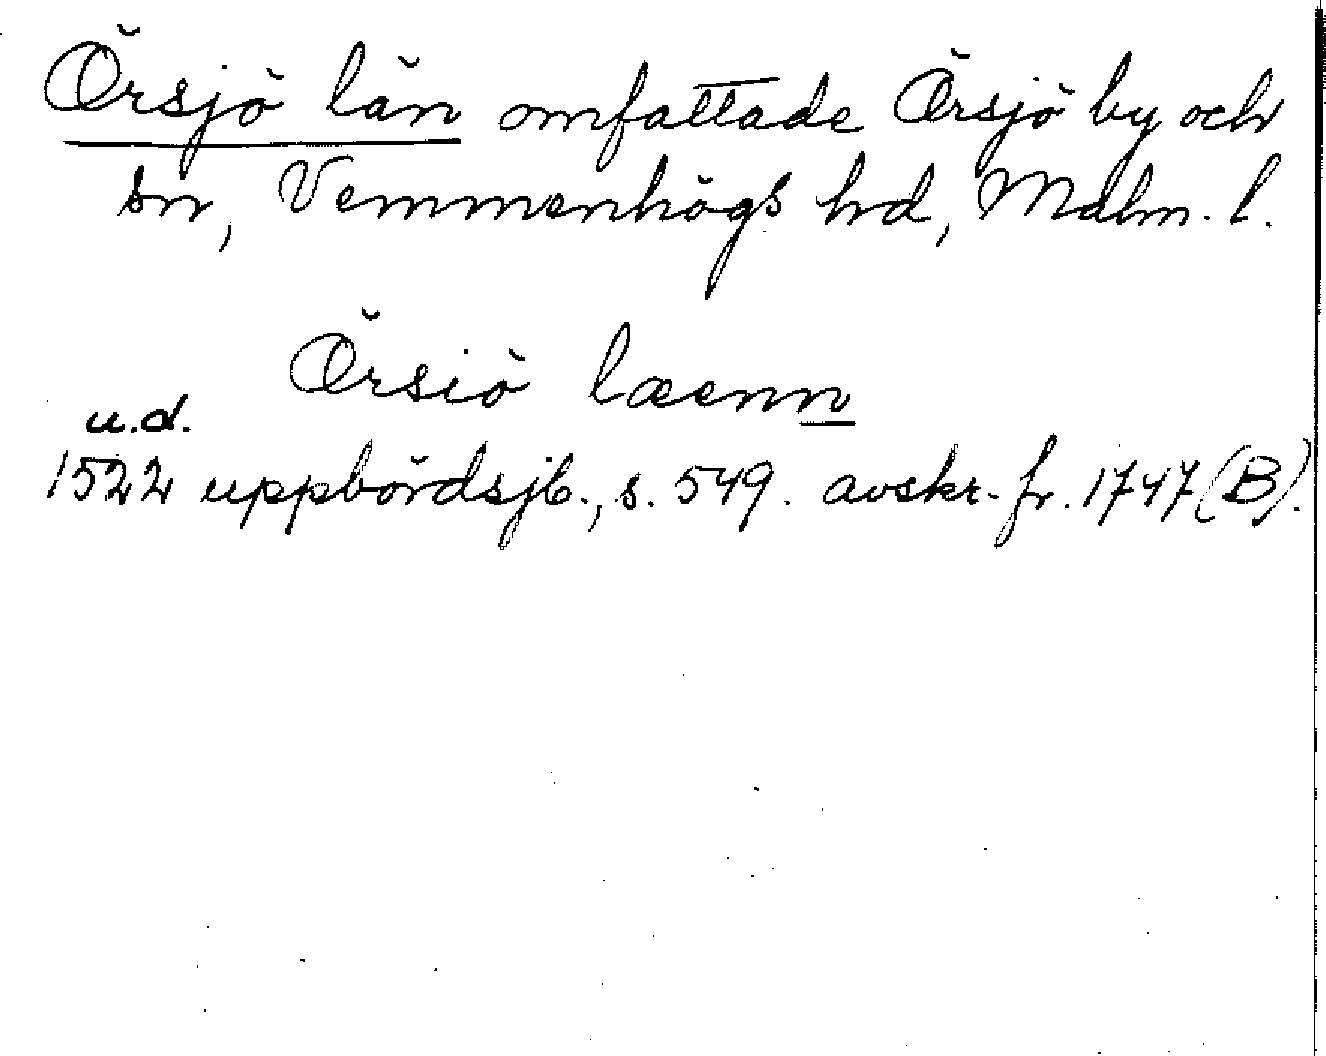 Örsjö län omfattade Örsjö by och
sn, Vemmenhögs hd, Malm. l.
Örsiö læenn
u.d.
1522 uppbördsjb., s. 549. avskr. fr. 1747 (B).